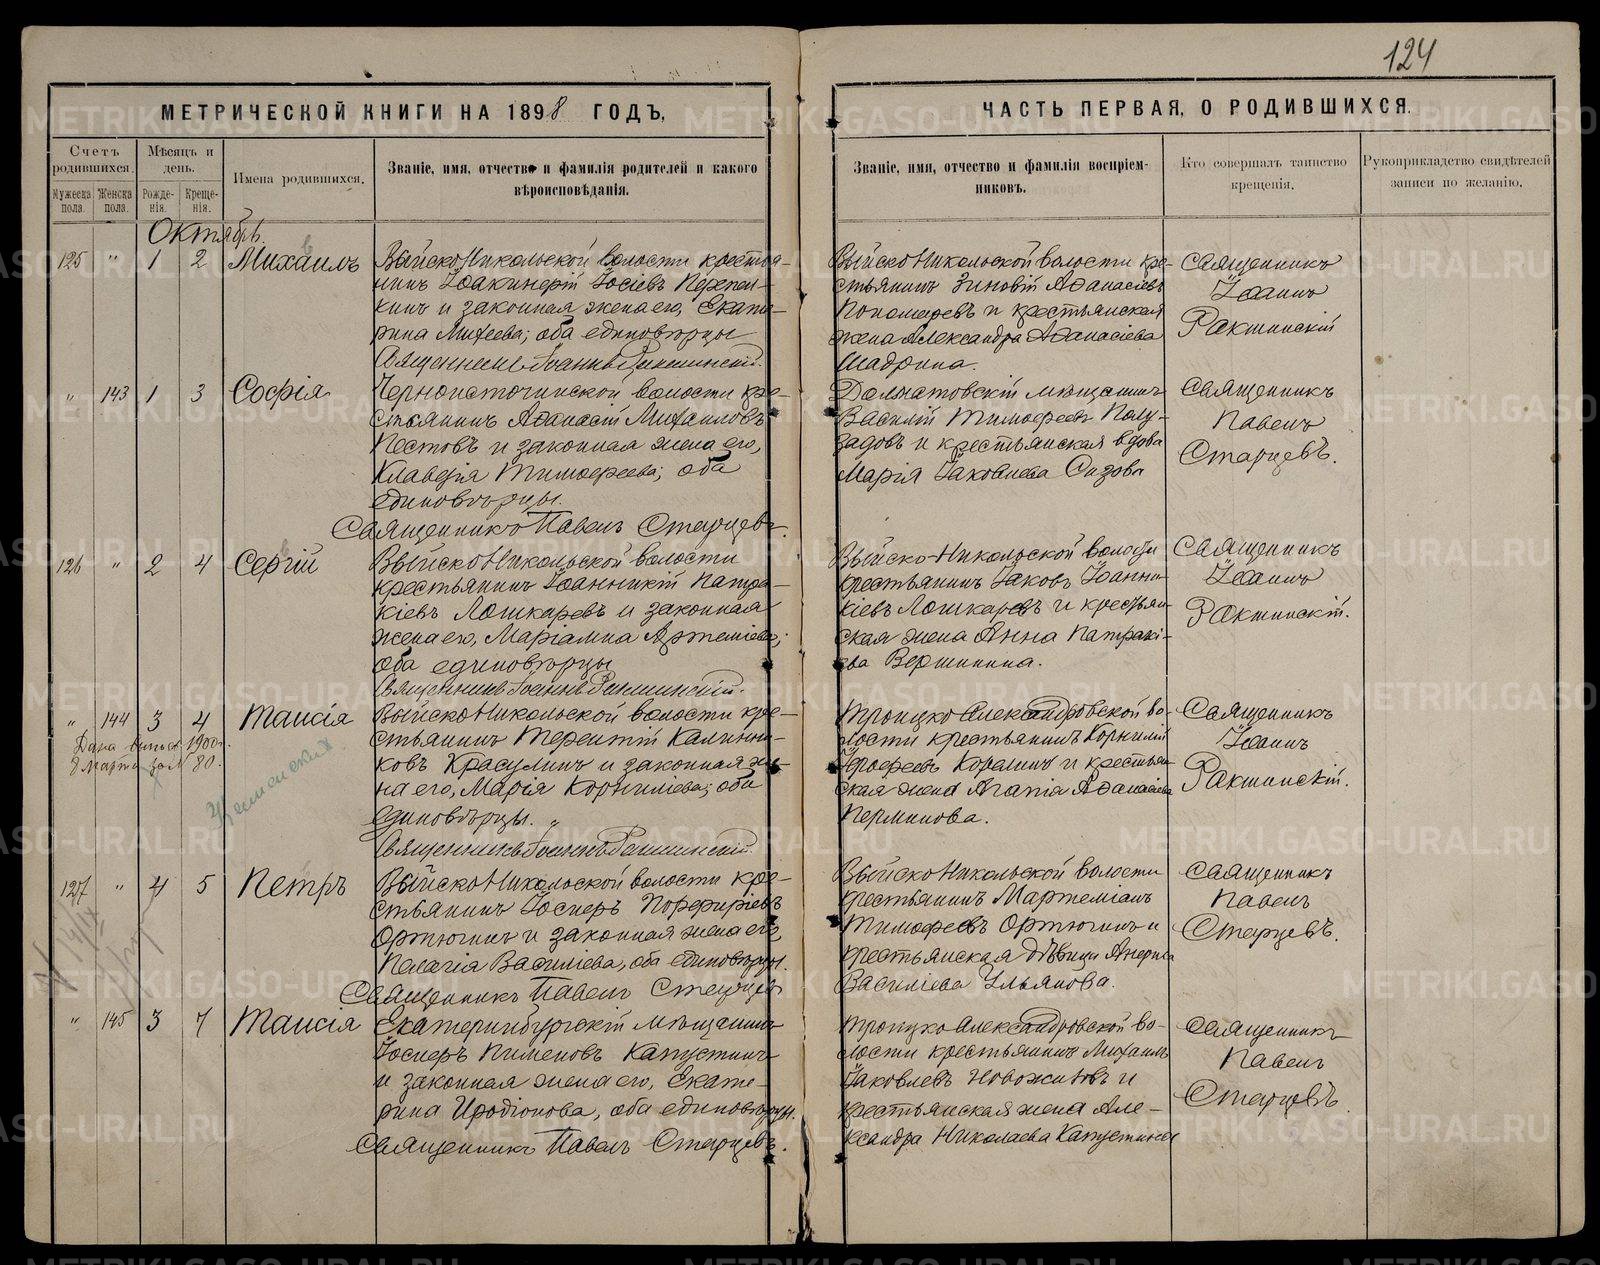 124
МЕТРИЧЕСКОЙ КНИГИ НА 1898 ГОДЪ,
ЧАСТЬ ПЕРВАЯ, О РОДИВШИХСЯ.
Счетъ родившихся.
Мужеска пола.
Женска пола.
Мѣсяцъ и день.
Рожденія.
Крещенія.
Имена родившихся.
Званіе, имя, отчество и фамилія родителей и какого
вѣроисповѣданія.
Званіе, имя, отчество и фамилія воспріем-
никовъ.
Кто совершалъ таинство
крещенія.
Рукоприкладство свидѣтелей
записи по желанію.
Октябрь.
125 " 1 2 Михаилъ
Выйско Никольской волости крестья-
нинъ Іоакинѳій Іосіевъ
кинъ и законная жена его, Екате-
рина Михеева; оба единовѣрцы
Священникъ Іоаннъ Ракшинскій.
Выйско Никольской волости кре-
стьянинъ Зиновій Аѳанасіевъ
Пономаревъ и крестьянская
жена Александра Аѳанасіева
Шадрина.
Священникъ
Іоаннъ
Ракшинскій
" 143 1 3 Софія
Черноисточинской волости кре-
стьянинъ Аѳанасій Михаиловъ
Пестовъ и законная жена его,
Клавдія Тимофеева; оба
единовѣрцы.
Священникъ Павелъ Старцевъ.
Долматовскій мѣщанинъ
Василій Тимофеевъ Полу-
задовъ и крестьянская вдова
Марія Іаковлева Сизова
Священникъ
Павелъ
Старцевъ.
126 " 2 4 Сергій
Выйско Никольской волости
крестьянинъ Іоанникій Патра-
кіевъ Лошкаревъ и законная
жена его, Маріамна Артеміева;
оба единовѣрцы
Священникъ Іоаннъ Ракшинскій.
Выйско-Никольской волости
крестьянинъ Іаковъ Іоанни-
кіевъ Лошкаревъ и крестьян-
ская жена Анна Патракі-
ева Вершинина.
Священникъ
Іоаннъ
Ракшинскій.
" 144 3 4 Таисія
Дана выпись 1900г.
8 марта за № 80.
Выйско Никольской волости кре-
стьянинъ Терентій Калинни-
ковъ Красулинъ и законная же-
на его, Марія Корниліева; оба
единовѣрцы. "
Священникъ Іоаннъ Ракшинскій.
Троицко Александровской во-
лости крестьянинъ Корнилій
Ерофеевъ и крестьян-
ская жена Агапія Аѳанасіева
Перминова.
Священникъ
Іоаннъ
Ракшинскій.
127 " 4 5 Петръ
Выйско Никольской волости кре-
стьянинъ Іосифъ Порфиріевъ
Ортюгинъ и законная жена его,
Пелагія Василіева, оба единовѣрцы.
Священникъ Павелъ Старцевъ
Выйско Никольской волости
крестьянинъ Мартеміанъ
Тимофеевъ Ортюгинъ и
крестьянская дѣвица
Василіева Ульянова.
Священникъ
Павелъ
Старцевъ.
" 145 3 7 Таисія
Екатеринбургскій мѣщанинъ
Іосифъ Пименовъ Капустинъ
и законная жена его, Екате-
рина Иродіонова, оба единовѣрцы.
Священникъ Павелъ Старцевъ.
Троицко Александровской во-
лости крестьянинъ Михаилъ
Іаковлевъ Новожиловъ и
крестьянская жена Але-
ксандра Николаева Капустина
Священникъ
Павелъ
Старцевъ.
METRIKI.GASO-URAL.RU